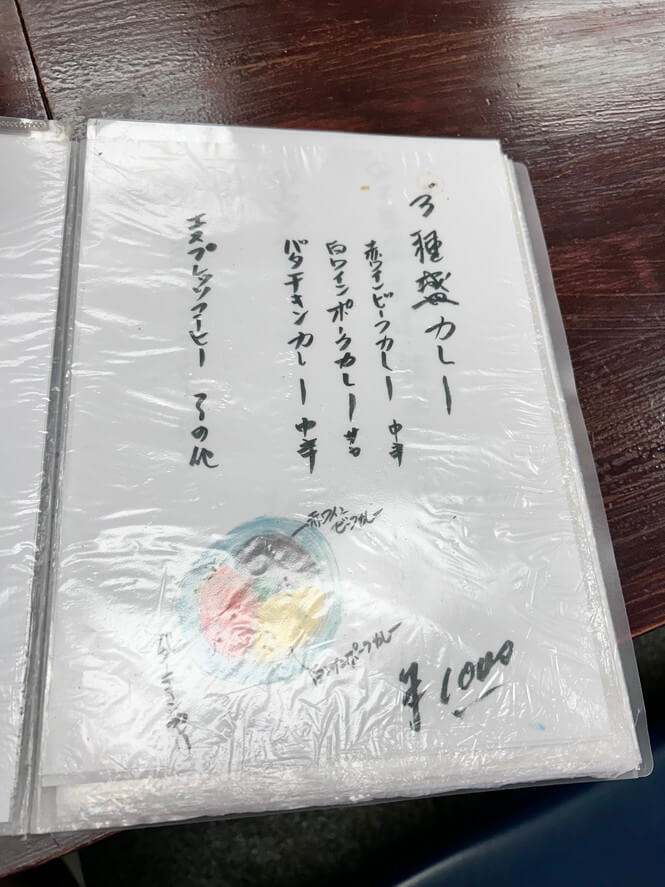 3種盛カレー
赤ワインビーフカレー 中辛
白ワインポークカレー 甘口
バタチキンカレー 中辛
エスプレッソコーヒー その他
赤ワイン
ビーフカレー
白ワインポークカレー
¥1000